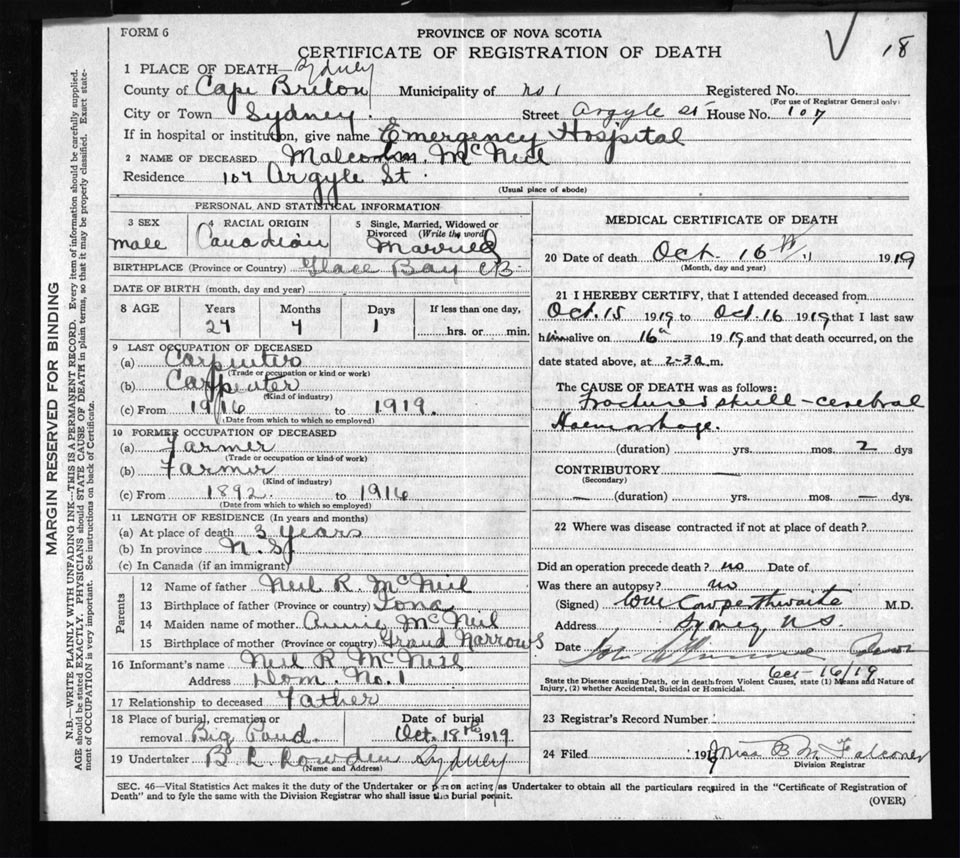 FORM 6
PROVINCE OF NOVA SCOTIA
CERTIFICATE OF REGISTRATION OF DEATH
18
1 PLACE OF DEATH—Sydney
County of Cape Breton Municipality of No 1 Registered No.
(For use of Registrar General only)
City or Town Sydney Street Argyle St House No. 107
If in hospital or institution, give name Emergency Hospital
2 NAME OF DECEASED Malcolm McNeil
Residence 107 Argyle St
(Usual place of abode)
MARGIN RESERVED FOR BINDING
N.B.—WRITE PLAINLY WITH UNFADING INK—THIS IS A PERMANENT RECORD. Every item of information should be carefully supplied.
AGE should be stated EXACTLY. PHYSICIANS should STATE CAUSE OF DEATH in plain terms, so that it may be properly classified. Exact state-
ment of OCCUPATION is very important. See instructions on back of Certificate.
PERSONAL AND STATISTICAL INFORMATION
3 SEX male
4 RACIAL ORIGIN Canadian
5 Single, Married, Widowed or
Divorced (Write the word)
Married
BIRTHPLACE (Province or Country) Glace Bay CB
DATE OF BIRTH (month, day and year)
8 AGE Years Months Days If less than one day,
27 4 1 hrs. or min.
9 LAST OCCUPATION OF DECEASED
(a) Carpenter
(Trade or occupation or kind of work)
(b) Carpenter
(Kind of industry)
(c) From 1916 to 1919.
(Date from which to which so employed)
10 FORMER OCCUPATION OF DECEASED
(a) Farmer
(Trade or occupation or kind of work)
(b) Farmer
(Kind of industry)
(c) From 1892 to 1916
(Date from which to which so employed)
11 LENGTH OF RESIDENCE (In years and months)
(a) At place of death 3 years
(b) In province N.S.
(c) In Canada (if an immigrant)
Parents
12 Name of father Neil R. McNeil
13 Birthplace of father (Province or country) Iona
14 Maiden name of mother Annie McNeil
15 Birthplace of mother (Province or country) Grand Narrows
16 Informant's name Neil R McNeil
Address Dom. No. 1
17 Relationship to deceased Father
18 Place of burial, cremation or
removal Big Pond.
Date of burial
Oct. 18th 1919
19 Undertaker B L Rowden Sydney
(Name and Address)
MEDICAL CERTIFICATE OF DEATH
20 Date of death Oct. 16th 1919
(Month, day and year)
21 I HEREBY CERTIFY, that I attended deceased from
Oct. 15 1919 to Oct. 16 1919 that I last saw
him alive on 16th 1919 and that death occurred, on the
date stated above, at 2-3 a.m.
The CAUSE OF DEATH was as follows:
Fractured skull - cerebral
Haemorrhage.
(duration) yrs. mos. 2 dys
CONTRIBUTORY —
(Secondary)
— (duration) yrs. mos. — dys.
22 Where was disease contracted if not at place of death?
Did an operation precede death? no Date of
Was there an autopsy? no
(Signed) Wm Cowperthwaite M.D.
Address Sydney N.S.
Date
Oct-16/19
State the Disease causing Death, or in death from Violent Causes, state (1) Means and Nature of
Injury, (2) whether Accidental, Suicidal or Homicidal.
23 Registrar's Record Number
24 Filed 191 9 B M Falconer
Division Registrar
SEC. 46—Vital Statistics Act makes it the duty of the Undertaker or person acting as Undertaker to obtain all the particulars required in the "Certificate of Registration of
Death" and to fyle the same with the Division Registrar who shall issue the burial permit.
(OVER)